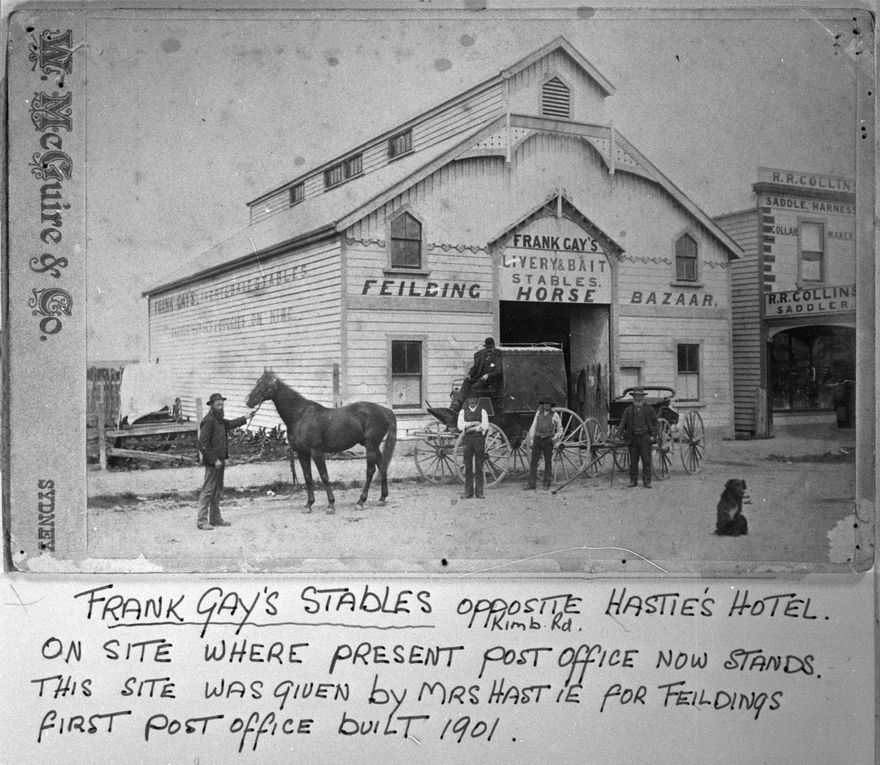 W. McGuire & Co.
SYDNEY
FRANK GAY'S
LIVERY & BAIT
STABLES.
HORSE
FEILDING
BAZAAR.
FRANK GAY'S LIVERY & BAIT STABLES
ON HIRE
R.R. COLLINS
SADDLE, HARNESS
COLLAR MAKER
R.R. COLLINS
SADDLER
FRANK GAY'S STABLES OPPOSITE HASTIE'S HOTEL.
Kimb. Rd.
ON SITE WHERE PRESENT POST OFFICE NOW STANDS.
THIS SITE WAS GIVEN by MRS HASTIE FOR FEILDINGS
FIRST POST OFFICE built 1901.